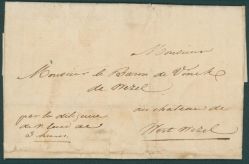 Monsieur
Monsieur le Baron de Vinck
de Wezel
au chateau de
West Wezel
par la diligence
de
3 heures